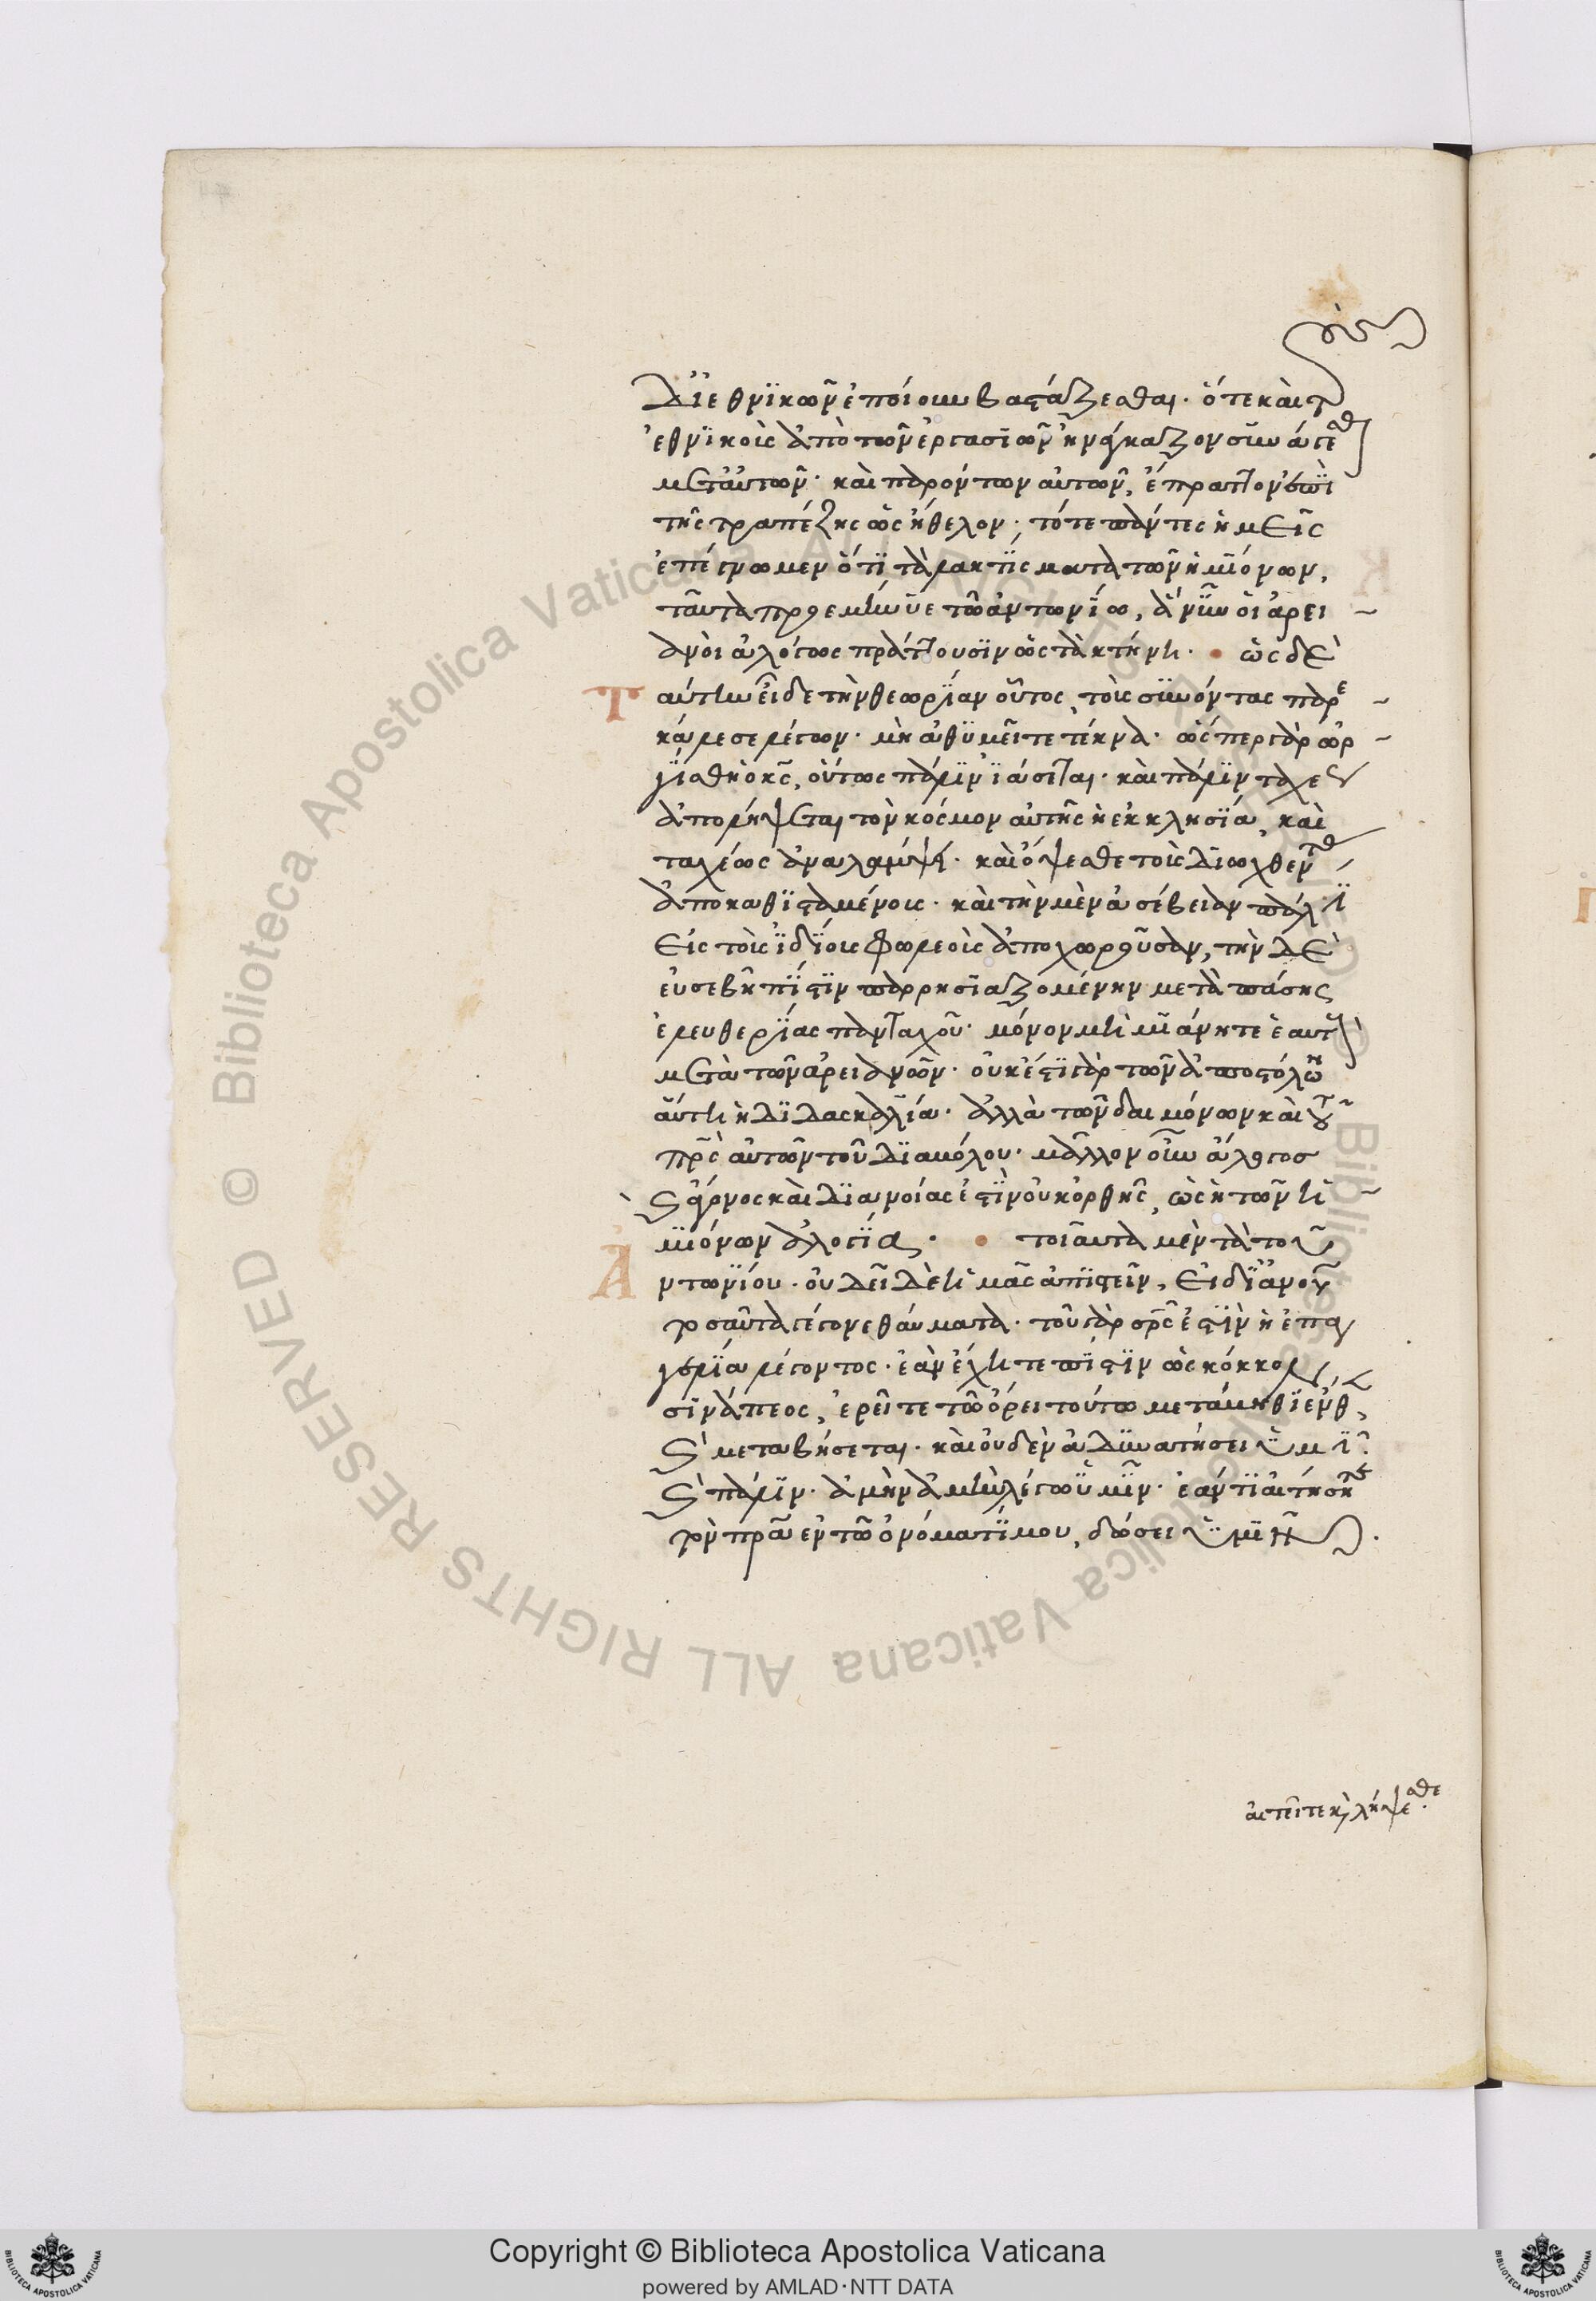 δι' ἐθνικῶν ἐποίουν βαστάζεσθαι. ὅτε καὶ τοὺς
ἐθνικοὺς ἀπὸ τῶν ἐργασιῶν ἠνάγκαζον συνάγεσθαι
μετ' αὐτῶν. καὶ παρόντων αὐτῶν, ἔπραττον ἐπὶ
τῆς τραπέζης ὡς ἤθελον. τότε πάντες ἡμεῖς
ἐπέγνωμεν ὅτι τὰ λακτίσματα τῶν ἡμιόνων,
ταῦτα προεμήνυε τῶ ἀντωνίω, ἃ νῦν οἱ ἀρει
ανοὶ ἀλόγως πράττουσιν ὡς τὰ κτήνη. ὡς δὲ
ταύτην εἶδε τὴν θεωρίαν οὗτος, τοὺς συνόντας παρε
κάλεσε λέγων. μὴ ἀθυμεῖτε τέκνα. ὥσπερ γὰρ ὠρ
γίσθη ὁ κς, οὕτως πάλιν ἰάσεται. καὶ πάλιν ταχέως
ἀπολήψεται τὸν κόσμον αὐτῆς ἡ ἐκκλησία, καὶ
ταχέως ἀναλάμψει. καὶ ὄψεσθε τοὺς διωχθέντας
ἀποκαθισταμένους. καὶ τὴν μὲν ἀσέβειαν πάλιν
εἰς τοὺς ἰδίους φωλεοὺς ἀποχωροῦσαν, τὴν δὲ
εὐσεβῆ πίστιν παρρησιαζομένην μετὰ πάσης
ἐλευθερίας πανταχοῦ. μόνον μὴ μιάνητε ἑαυτοὺς
μετὰ τῶν ἀρειανῶν. οὐκ ἔστι γὰρ τῶν ἀποστόλων
αὕτη ἡ διδασκαλία. ἀλλὰ τῶν δαιμόνων καὶ τοῦ
πρς αὐτῶν τοῦ διαβόλου. μᾶλλον οὖν ἄλογος
καὶ ἄγονος καὶ διανοίας ἐστὶν οὐκ ὀρθῆς, ὡς ἡ τῶν ἡ
μιόνων ἀλογία. τοιαῦτα μὲν τὰ τοῦ
ἀντωνίου. οὐ δεῖ δὲ ἡμᾶς ἀπιστεῖν, εἰ δι' ἀνου
τοσαῦτα γέγονε θαύματα. τοῦ γὰρ σρς ἐστὶν ἡ ἐπαγ
γελία λέγοντος. ἐὰν ἔχητε πίστιν ὡς κόκκον
σινάπεος, ἐρεῖτε τῶ ὄρει τούτω μετάβηθι ἔνθεν,
καὶ μεταβήσεται. καὶ οὐδὲν ἀδυνατήσει ὑμῖν.
καὶ πάλιν. ἀμὴν ἀμὴν λέγω ὑμῖν. ἐάν τι αἰτήσητε
τὸν πρα ἐν τῶ ὀνόματί μου, δώσει ὑμῖν.
αἰτεῖτε καὶ λήψεσθε.